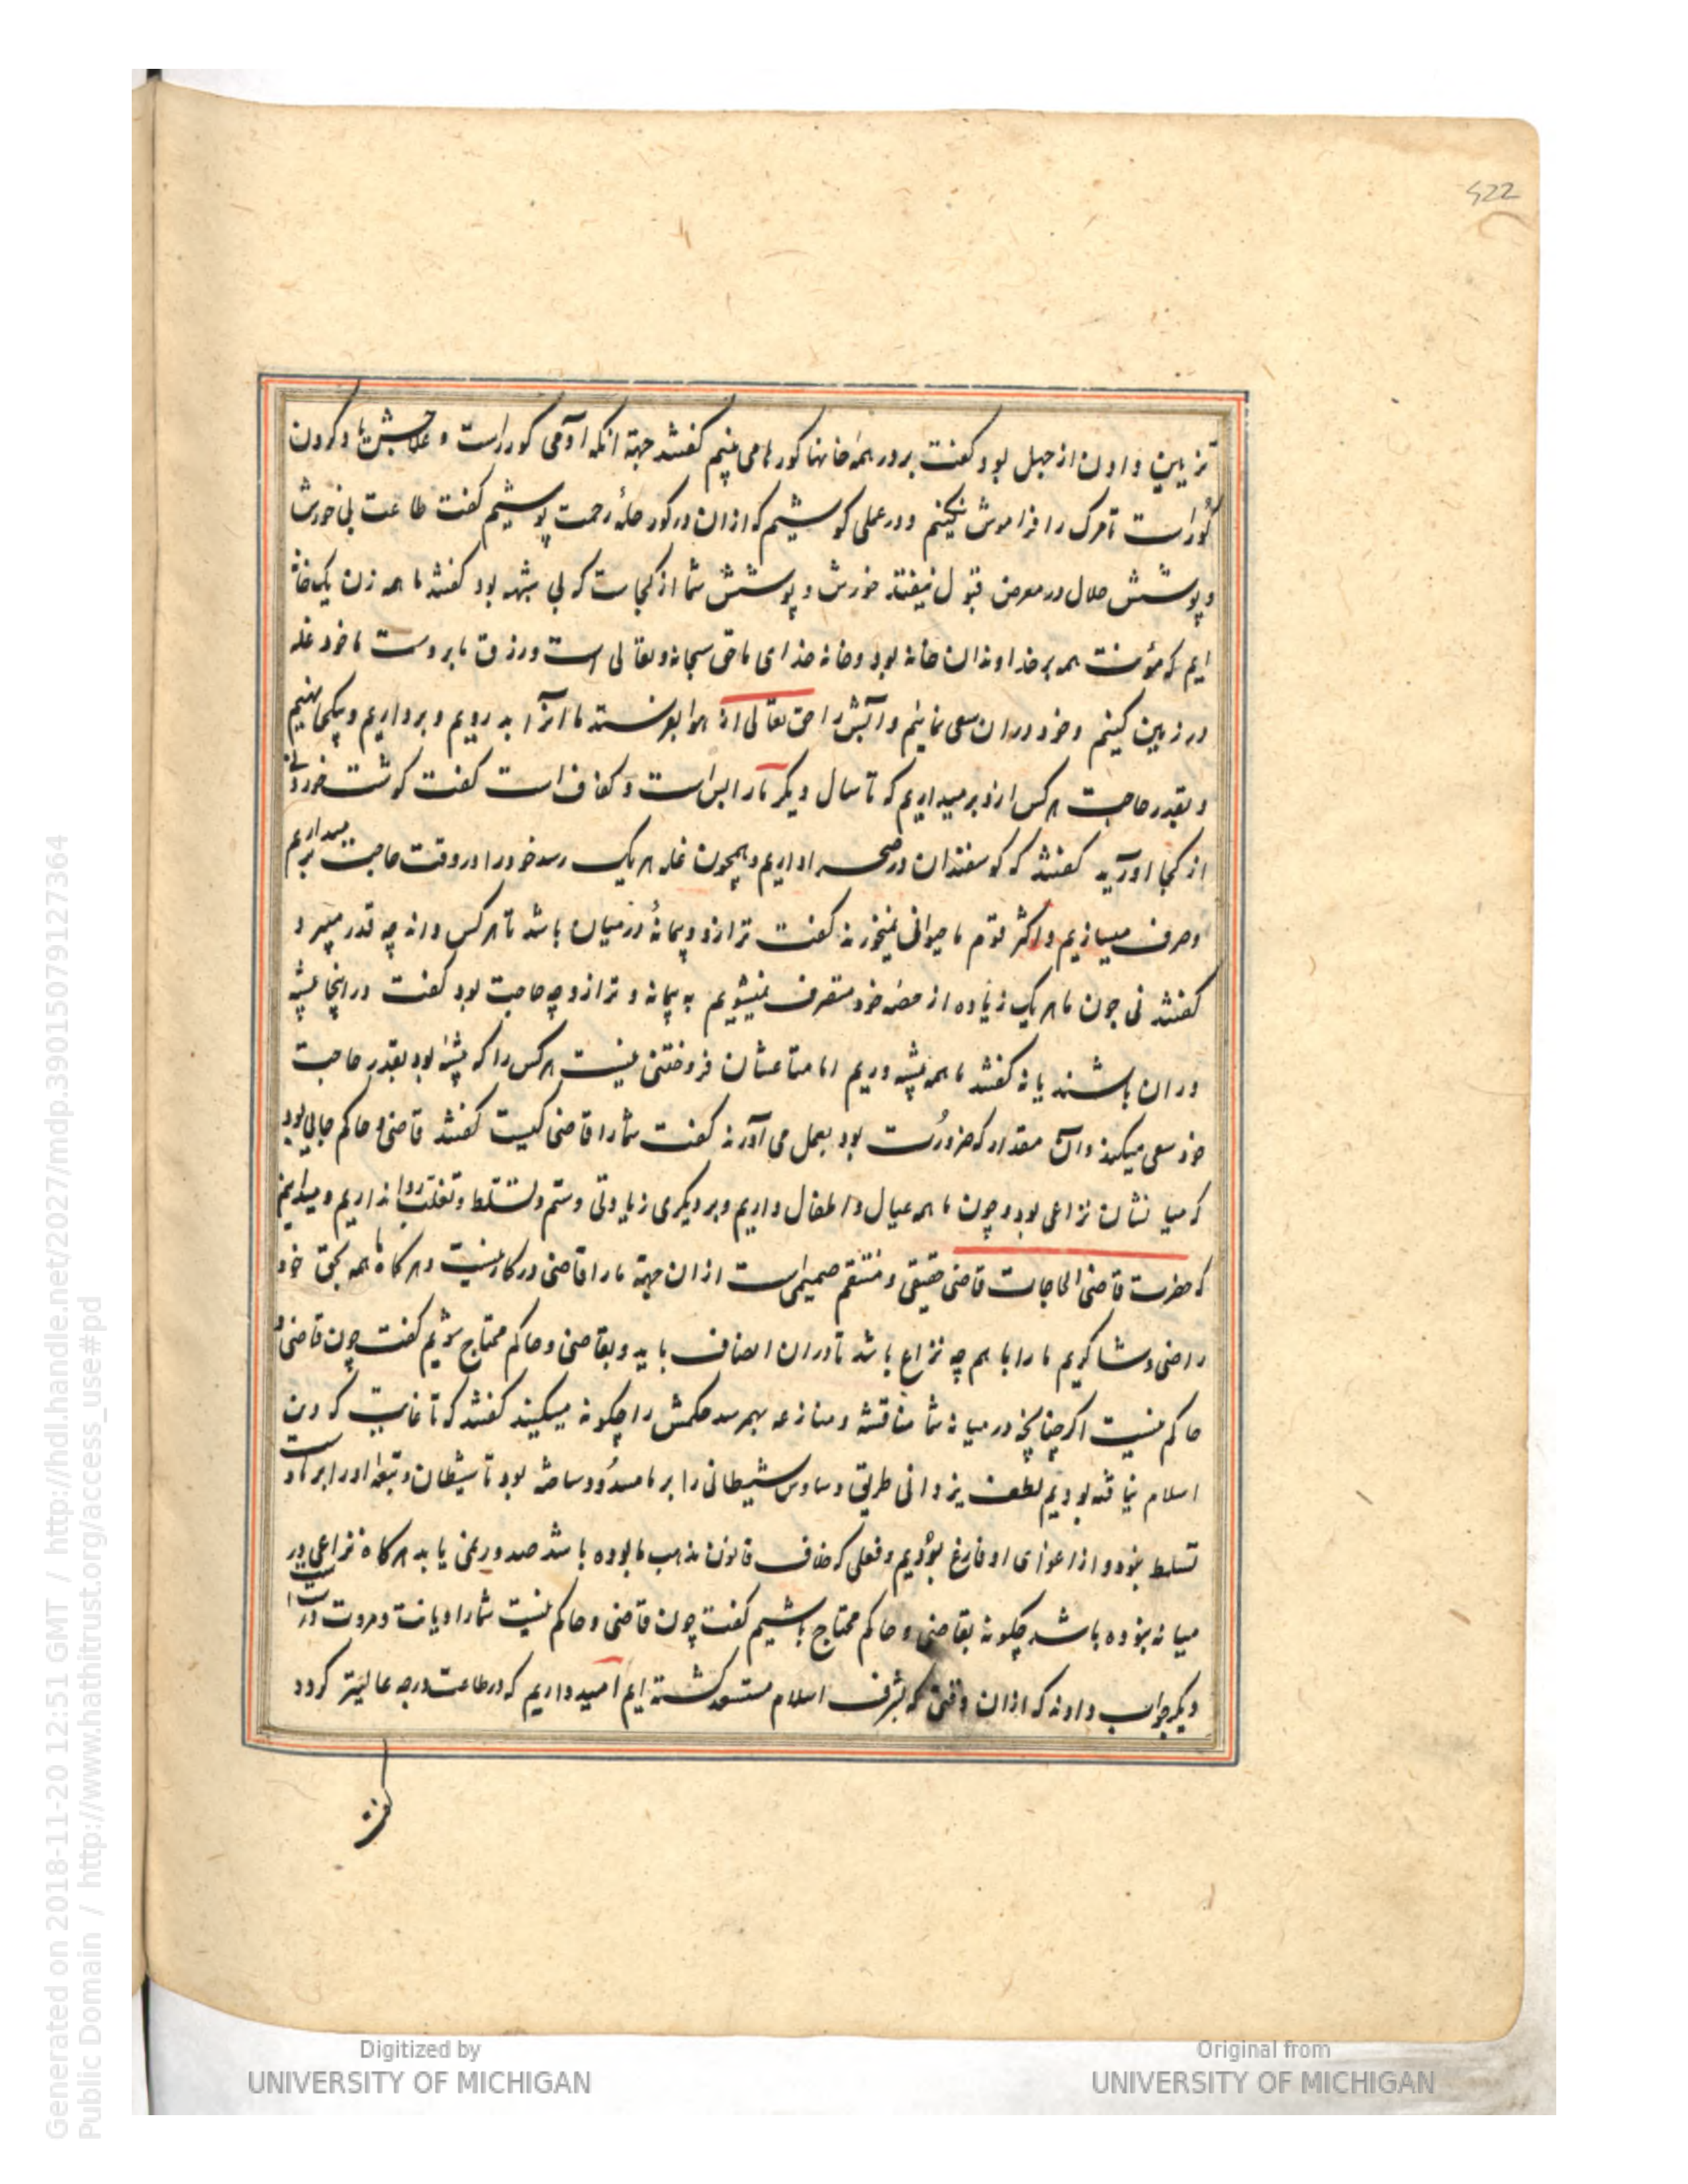 422
تزیین دادن از جهل بود کفت بر در همه خانها کورها می بینم کفتند جهة انکه آدمی کور راست و علاجش یاد کردن
کور است تا مرک را فراموش نکنیم و در عملی کوشیم که ازان در کور حلهٔ رحمت پوشیم کفت طاعت بی خورش
و پوشش حلال در معرض قبول نیفتد خورش و پوشش شما از کجاست که بی شبهه بود کفتند ما همه زن یک خانه
ایم که مؤنت همه بر خداوندان خانه بود و خانه خدای ما حق سبحانه و تعالی است و رزق ما بر وست ما خود غله
در زمین کنیم و خود دران سعی نمائیم و آبش را حق تعالی از هوا بفرستد ما انرا بدرویم و برداریم و یکجا نهیم
و بقدر حاجت هر کس ازو برمیداریم که تا سال دیکر ما را بس است و کفاف است کفت کوشت خوردنی
از کجا اورید کفتند که کوسفندان در صحرا داریم و همچون غله هر یک رسد خود را در وقت حاجت برمیداریم
و صرف میسازیم و اکثر قوم ما حیوانی نمیخورند کفت ترازو و پیمانهٔ در میان باشد تا هر کس داند چه قدر میبرد
کفتند نی چون ما هر یک زیاده از حصه خود متصرف نمیشویم به پیمانه و ترازو چه حاجت بود کفت در اینجا پیشه
وران باشند یا نه کفتند ما همه پیشه وریم اما متاعشان فروختنی نیست هر کس را که پیشه بود بقدر حاجت
خود سعی میکند و ان مقدار که ضرورت بود بعمل می آورند کفت شما را قاضی کیست کفتند قاضی و حاکم جایی بود
که میانشان نزاعی بود و چون ما همه عیال و اطفال داریم و بر دیکری زیادتی و ستم و تسلط و تغلب روا نداریم و میدانیم
که حضرت قاضی الحاجات قاضی حقیقی و منتقم صمیمی است ازان جهة ما را قاضی در کار نیست و هر کاه ما همه بحق خود
راضی و شاکریم ما را با هم چه نزاع باشد تا دران انصاف باید و بقاضی و حاکم محتاج شویم کفت چون قاضی و
حاکم نیست اکر چنانچه در میانه شما مناقشه و منازعه بهم رسد حکمش را چکونه میکنید کفتند که تا غایت که دین
اسلام نیافته بودیم لطف یزدانی طریق وساوس شیطانی را بر ما مسدود ساخته بود تا شیطان و تبعه او را بر ما دست
تسلط نبود و از اغوای او فارغ بودیم و فعلی که خلاف قانون مذهب ما بوده باشد صدور نمی یابد هر کاه نزاعی در
میانه نبوده باشد چکونه بقاضی و حاکم محتاج باشیم کفت چون قاضی و حاکم نیست شما را دیانت و مروت درست است
دیکر جواب دادند که ازان وقتی که بشرف اسلام مستسعد کشته ایم امید داریم که در طاعت درجه عالیتر کردد
کفت
Generated on 2018-11-20 12:51 GMT / http://hdl.handle.net/2027/mdp.39015079127364
Public Domain / http://www.hathitrust.org/access_use#pd
Digitized by
UNIVERSITY OF MICHIGAN
Original from
UNIVERSITY OF MICHIGAN